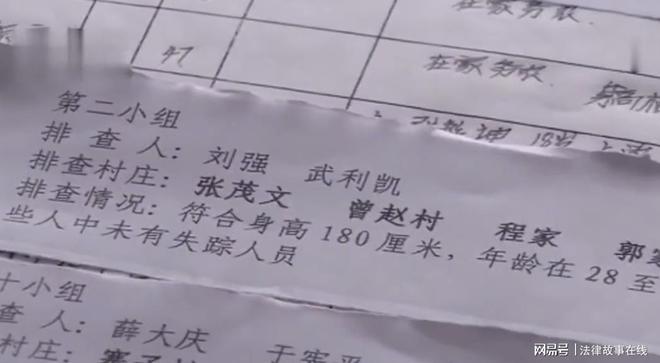 在家务农
47
在家务农
第二小组
排查人：刘强 武利凯
排查村庄：张茂文 曾赵村 程家 郭家
排查情况：符合身高180厘米，年龄在28至
些人中未有失踪人员
十小组
查人：薛大庆 于宪平
村庄：
网易号 | 法律故事在线